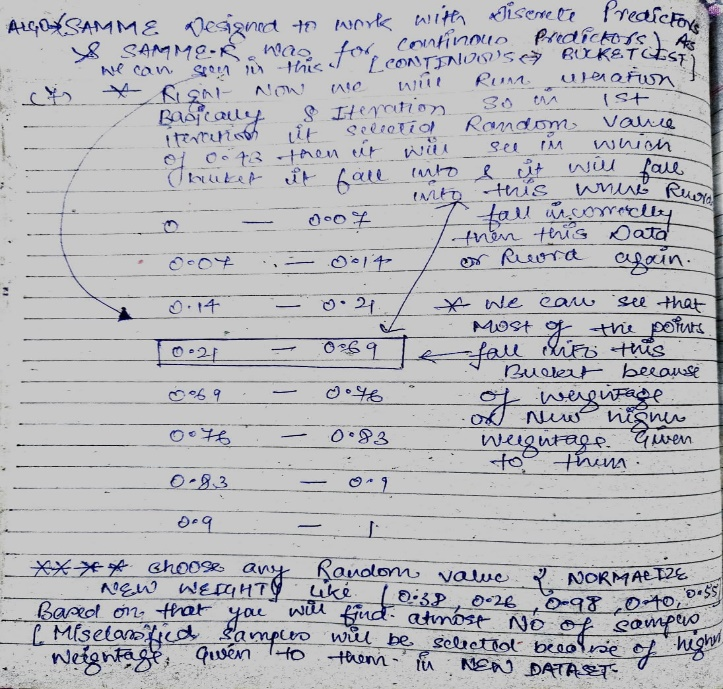 ALGO* SAMME Designed to work with Discrete Predictors
& SAMME.R was for continuous Predictors) As
we can seen in this. [CONTINUO'S ⇔ BUCKET LIST]
(7) * Right Now we will Run iteration
Basically 8 Iteration so in 1st
iteration it selected Random value
of 0.43 then it will see in which
bucket it fall into & it will fall
into this where Record
0 — 0.07 fall incorrectly
then this Data
0.07 — 0.14 or Record again.
0.14 — 0.21 * we can see that
Most of the points
0.21 — 0.69 fall into this
Bucket because
0.69 — 0.76 of weightage
or New higher
0.76 — 0.83 weightage Given
to them.
0.83 — 0.9
0.9 — 1
**** choose any Random value & NORMALIZE
NEW WEIGHT] like [0.38, 0.26, 0.98, 0.40, 0.55
Based on that you will find almost No of samples
[Misclassified samples will be selected because of higher
weightage given to them in NEW DATASET.